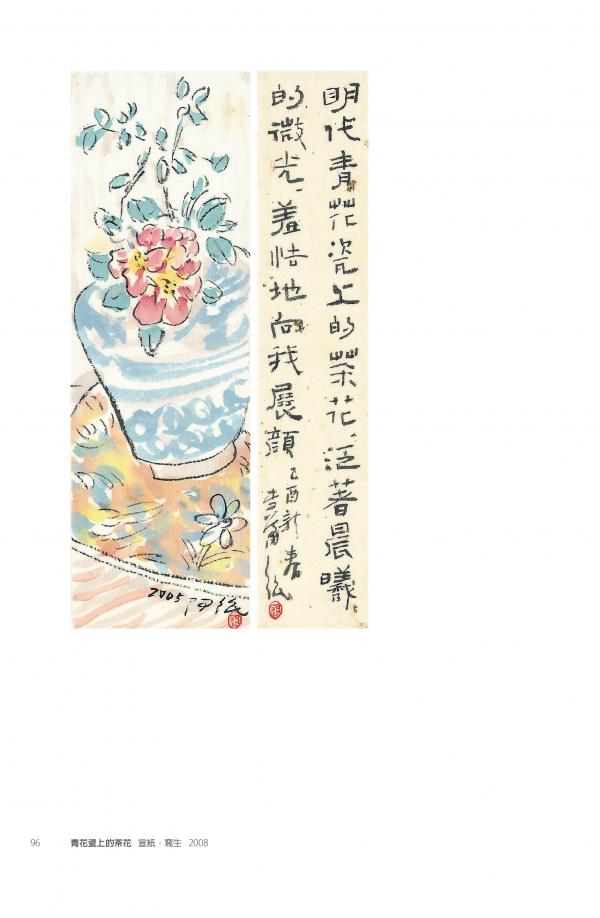 明代青花瓷上的茶花、泛著晨曦
的微光、羞怯地向我展顏
乙酉新春
2005
96 青花瓷上的茶花 宣紙・寫生 2008